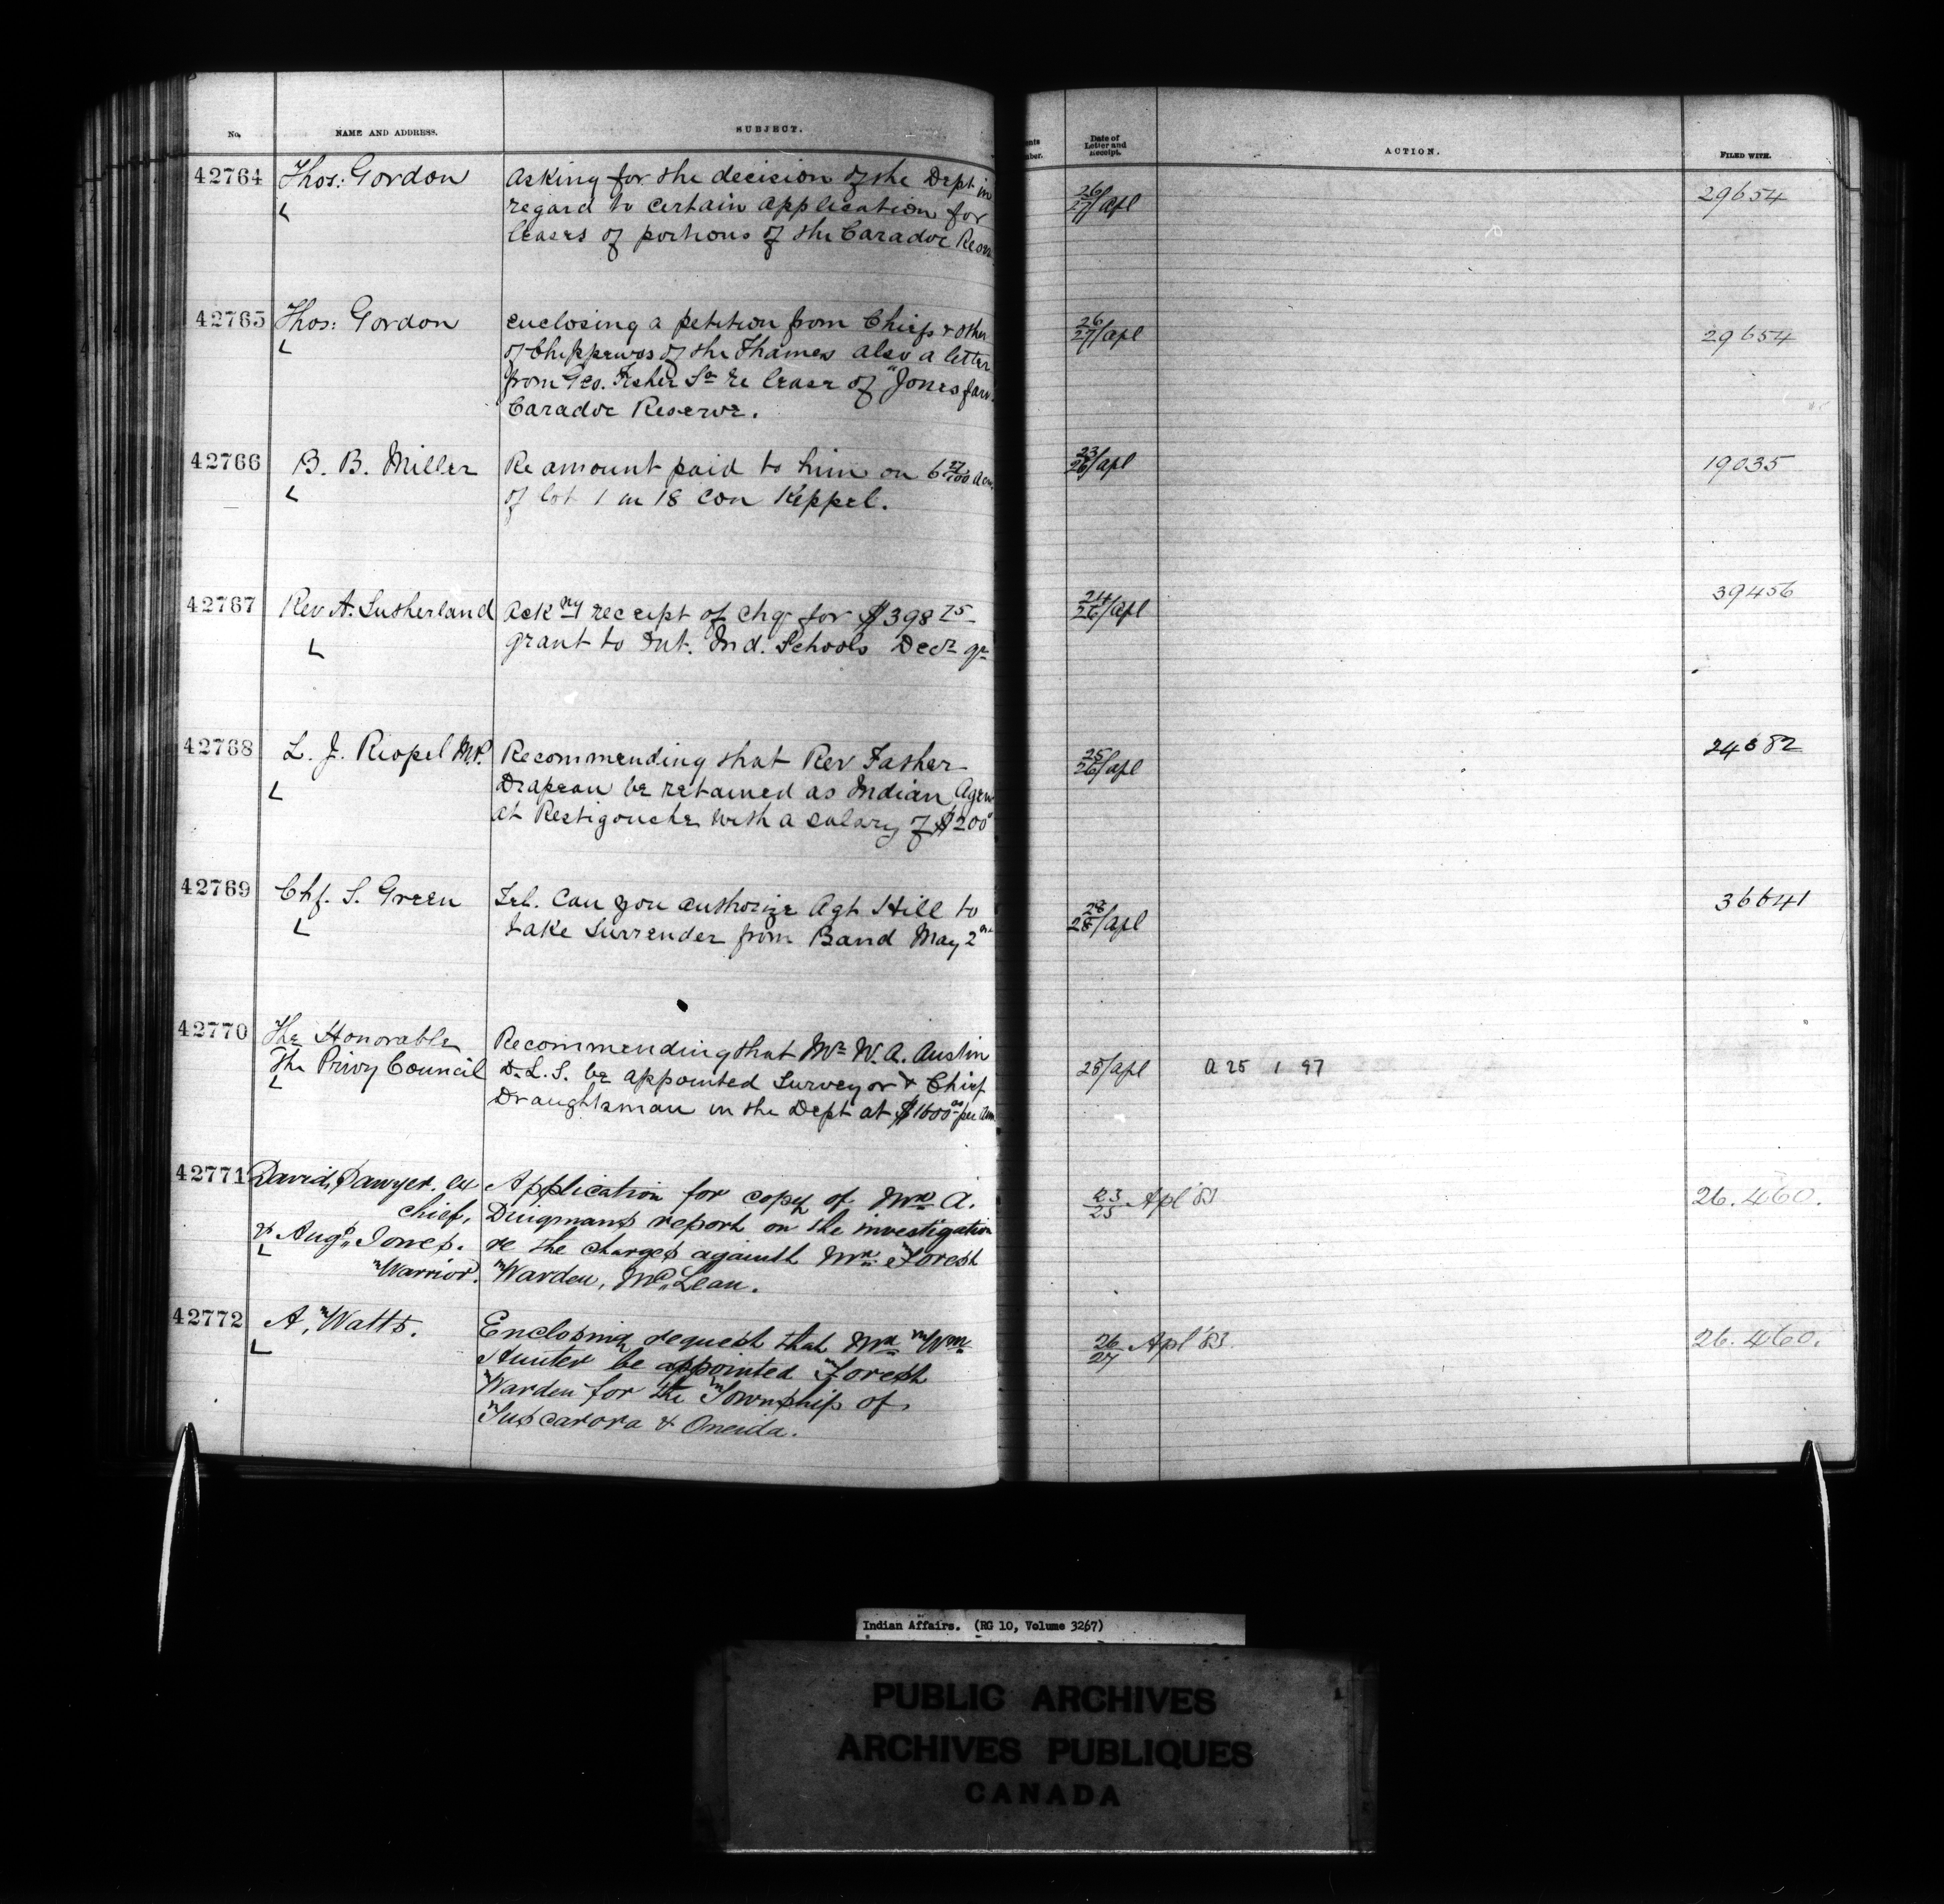 No. NAME AND ADDRESS. SUBJECT. Date of Letter and Receipt. ACTION. FILED WITH.
42764 Thos: Gordon Asking for the decision of the Dept in 26/27/apl 29654
regard to certain application for
leases of portions of the Caradoc Reserv
42765 Thos: Gordon enclosing a petition from Chiefs & other 26/27/apl 29654
of Chippewas of the Thames also a letter
from Geo. Fisher Sr re lease of "Jones farm
Caradoc Reserve.
42766 B. B. Miller Re amount paid to him on 6 27/100 acres 23/26/apl 19035
of lot 1 in 18 con Keppel.
42767 Rev A. Sutherland Ackng receipt of chq for $398 75 24/26/apl 39456
grant to Int. Ind. Schools Decr qr
42768 L. J. Riopel M.P. Recommending that Rev Father 25/26/apl
Drapeau be retained as Indian Agen
at Restigouche with a salary of $200
42769 Chf. S. Green Tel. Can you authorize Agt Hill to 28/28/apl 36641
take Surrender from Band May 2nd
42770 The Honorable Recommending that Mr W. A. Austin
The Privy Council D.L.S. be appointed Surveyor & Chief 25/apl A 25 1 97
Draughtsman in the Dept at $1600 00 per Ann
42771 David Sawyer. ex Application for copy of Mr. A. 23/25 Apl '83 26.460.
chief, Dingmans report on the investigation
& Aug. Jones. re the charges against Mr. Forest
Warrior. Warden, McLean.
42772 A. Watts. Enclosing request that Mr. Wm 26/27 Apl '83. 26.460.
Hunter be appointed Forest
Warden for the Township of
Tuscarora & Oneida.
Indian Affairs. (RG 10, Volume 3267)
PUBLIC ARCHIVES
ARCHIVES PUBLIQUES
CANADA